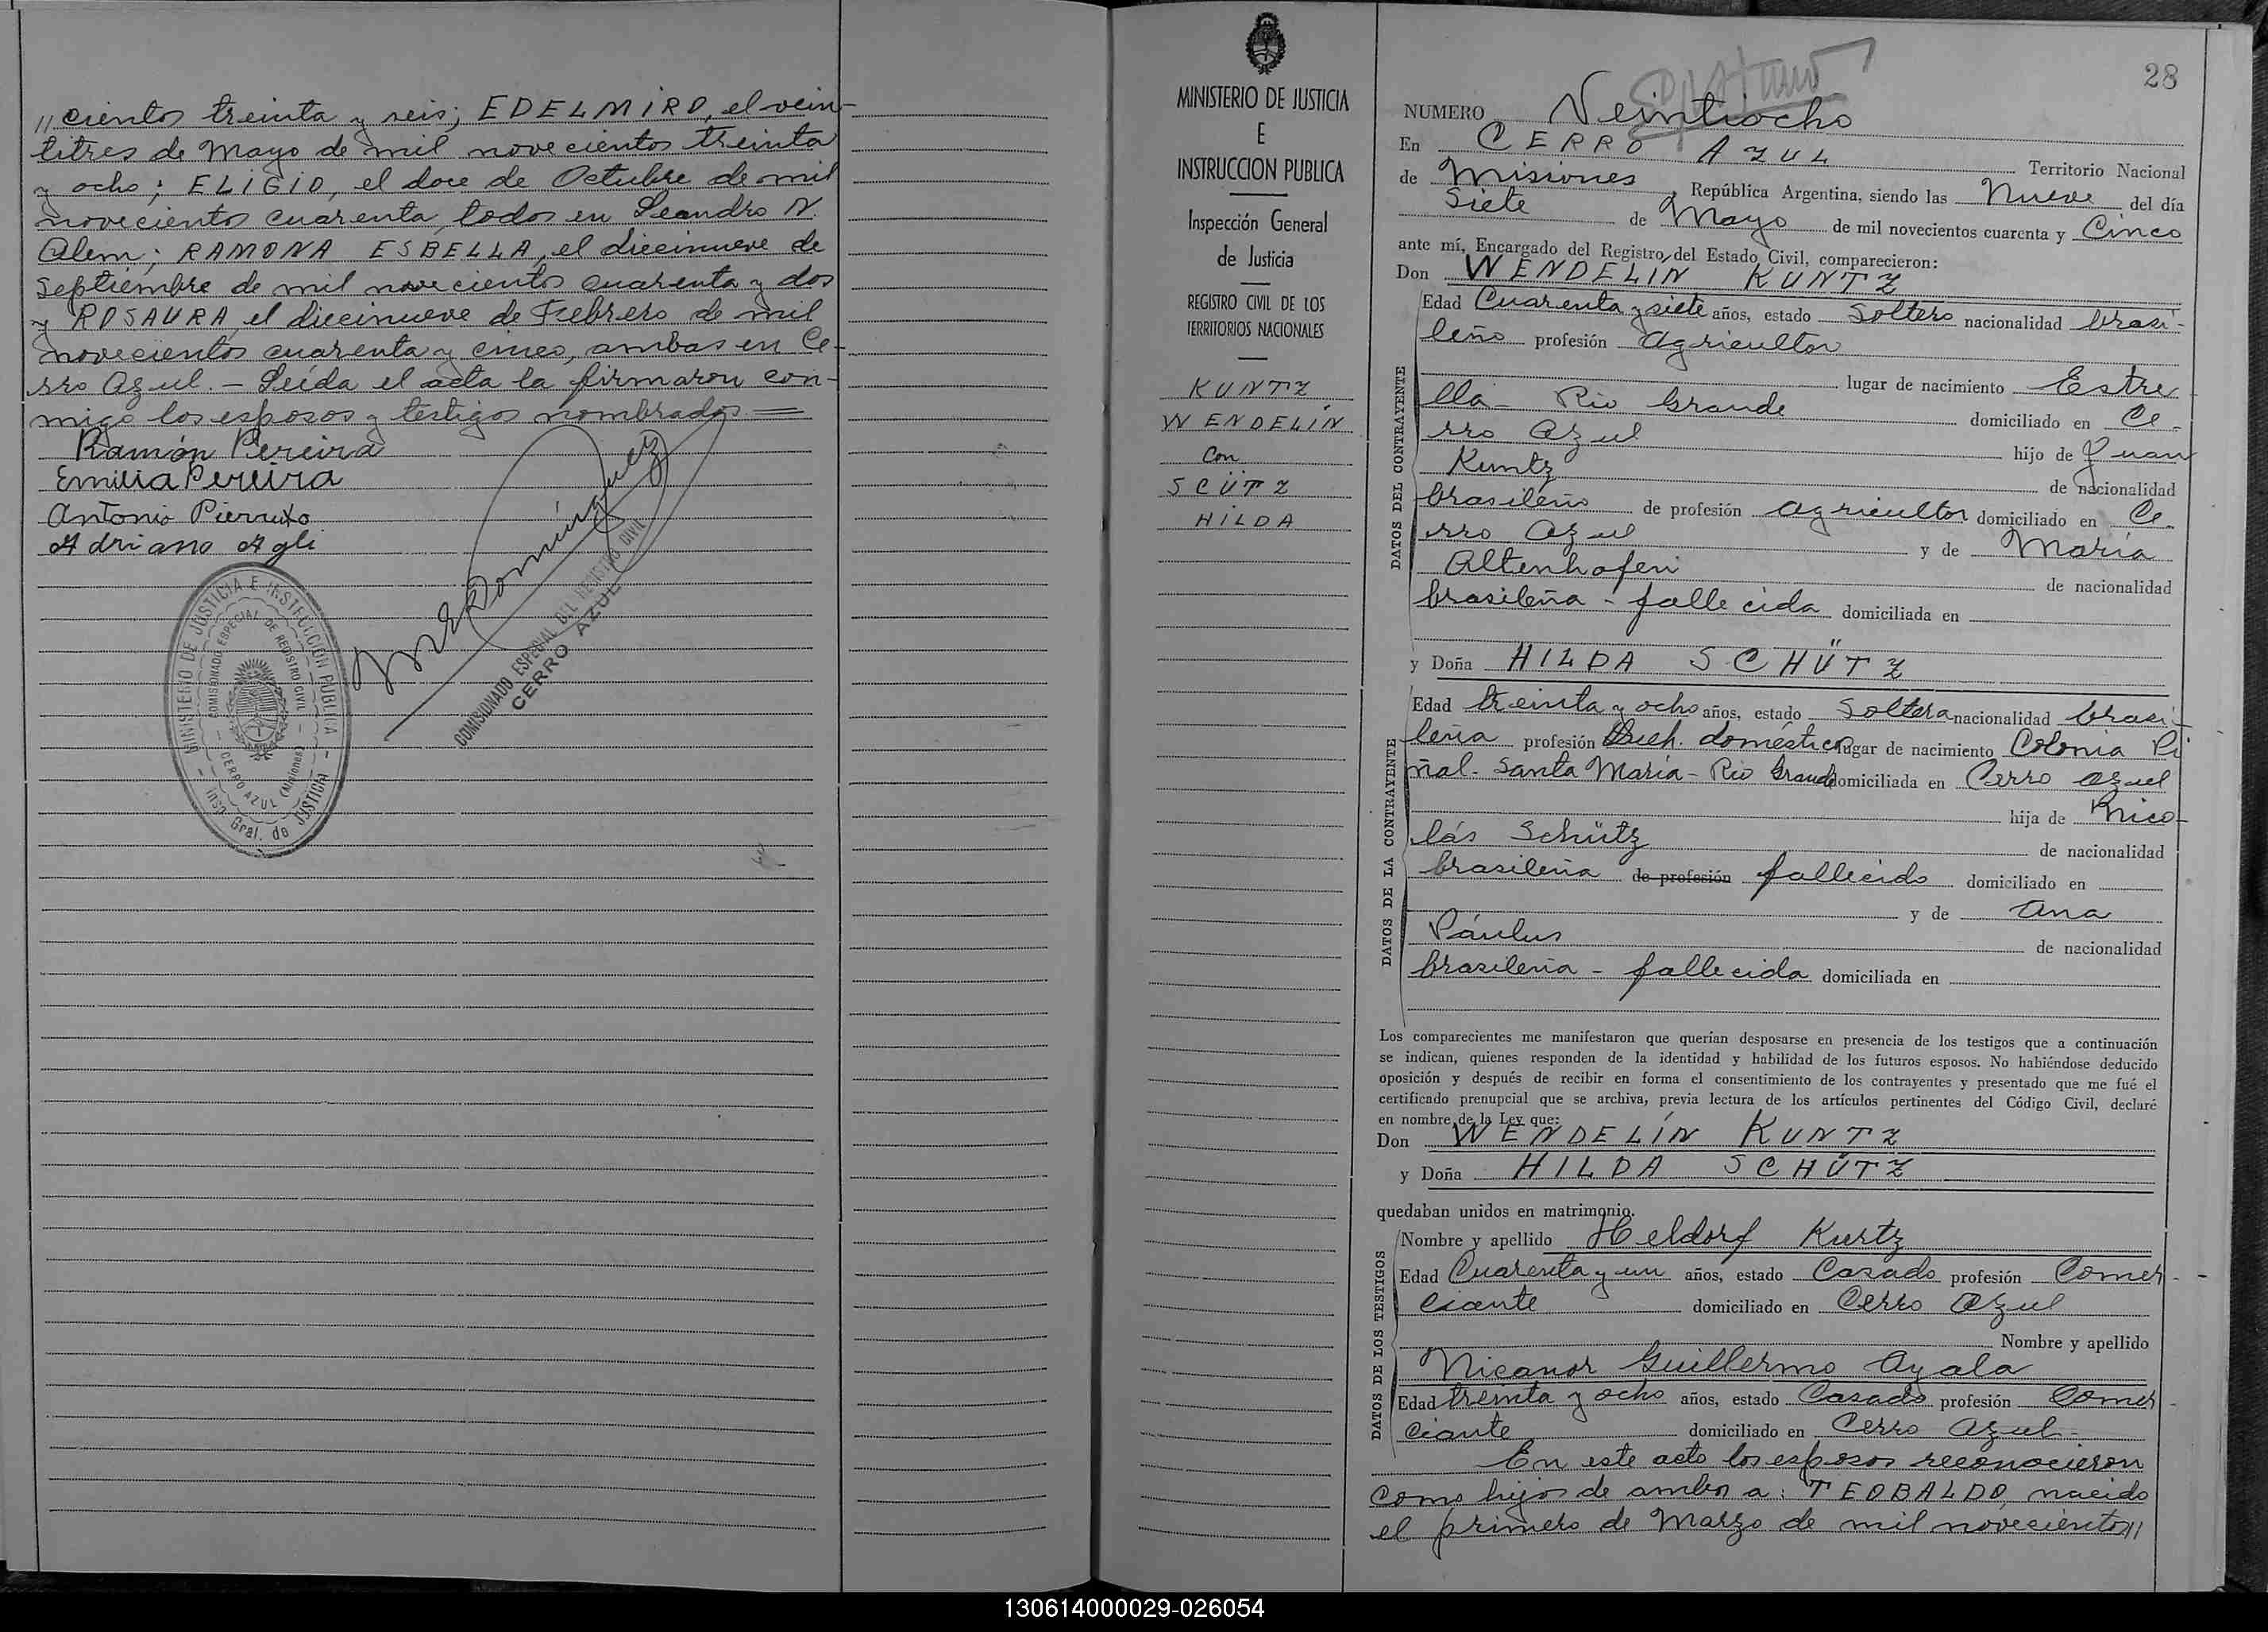 "cientos treinta y seis; EDELMIRO, el vein-
titres de Mayo de mil novecientos treinta
y ocho; ELIGIO, el doce de Octubre de mil
novecientos cuarenta, todos en Leandro N.
Alem; RAMONA ESBELLA, el diecinueve de
Septiembre de mil novecientos cuarenta y dos
y ROSAURA, el diecinueve de Febrero de mil
novecientos cuarenta y cinco, ambas en Ce-
rro Azul.- Leída el acta la firmaron con-
migo los esposos y testigos nombrados.=
Ramón Pereira
Emilia Pereira
Antonio Pierruto
Adriano Agli
MINISTERIO DE JUSTICIA E INSTRUCCIÓN PUBLICA - Insp. Gral. de JUSTICIA -
COMISIONADO ESPECIAL DE REGISTRO CIVIL - CERRO AZUL (Misiones) -
COMISIONADO ESPECIAL DEL REGISTRO CIVIL
CERRO AZUL
MINISTERIO DE JUSTICIA
E
INSTRUCCION PUBLICA
Inspección General
de Justicia
REGISTRO CIVIL DE LOS
TERRITORIOS NACIONALES
KUNTZ
WENDELÍN
Con
SCÜTZ
HILDA
28
NUMERO Veintiocho
En CERRO AZUL Territorio Nacional
de Misiones, República Argentina, siendo las Nueve del día
Siete de Mayo de mil novecientos cuarenta y Cinco
ante mí, Encargado del Registro del Estado Civil, comparecieron:
Don WENDELÍN KUNTZ
DATOS DEL CONTRAYENTE
Edad Cuarenta y siete años, estado Soltero nacionalidad brasi-
leño profesión Agricultor
lugar de nacimiento Estre
lla - Rio Grande domiciliado en Ce-
rro Azul hijo de Juan
Kuntz de nacionalidad
brasileño de profesión agricultor domiciliado en Ce-
rro Azul y de María
Altenhofen de nacionalidad
brasileña - fallecida domiciliada en
y Doña HILDA SCHÜTZ
DATOS DE LA CONTRAYENTE
Edad treinta y ocho años, estado Soltera nacionalidad brasi-
leña profesión Queh. domésticos lugar de nacimiento Colonia Pi
ñal. Santa María - Rio Grande domiciliada en Cerro Azul
hija de Nico-
lás Schütz de nacionalidad
brasileña de profesión fallecido domiciliado en
y de Ana
Páulus de nacionalidad
brasileña - fallecida domiciliada en
Los comparecientes me manifestaron que querían desposarse en presencia de los testigos que a continuación
se indican, quienes responden de la identidad y habilidad de los futuros esposos. No habiéndose deducido
oposición y después de recibir en forma el consentimiento de los contrayentes y presentado que me fué el
certificado prenupcial que se archiva, previa lectura de los artículos pertinentes del Código Civil, declaré
en nombre de la Ley que:
Don WENDELÍN KUNTZ
y Doña HILDA SCHÜTZ
quedaban unidos en matrimonio.
DATOS DE LOS TESTIGOS
Nombre y apellido Heldorf Kurtz
Edad Cuarenta y un años, estado Casado profesión Comer-
ciante domiciliado en Cerro Azul
Nombre y apellido
Nicanor Guillermo Ayala
Edad treinta y ocho años, estado Casado profesión Comer-
ciante domiciliado en Cerro Azul.-
En este acto los esposos reconocieron
como hijos de ambos a: TEOBALDO, nacido
el primero de Marzo de mil novecientos"
130614000029-026054